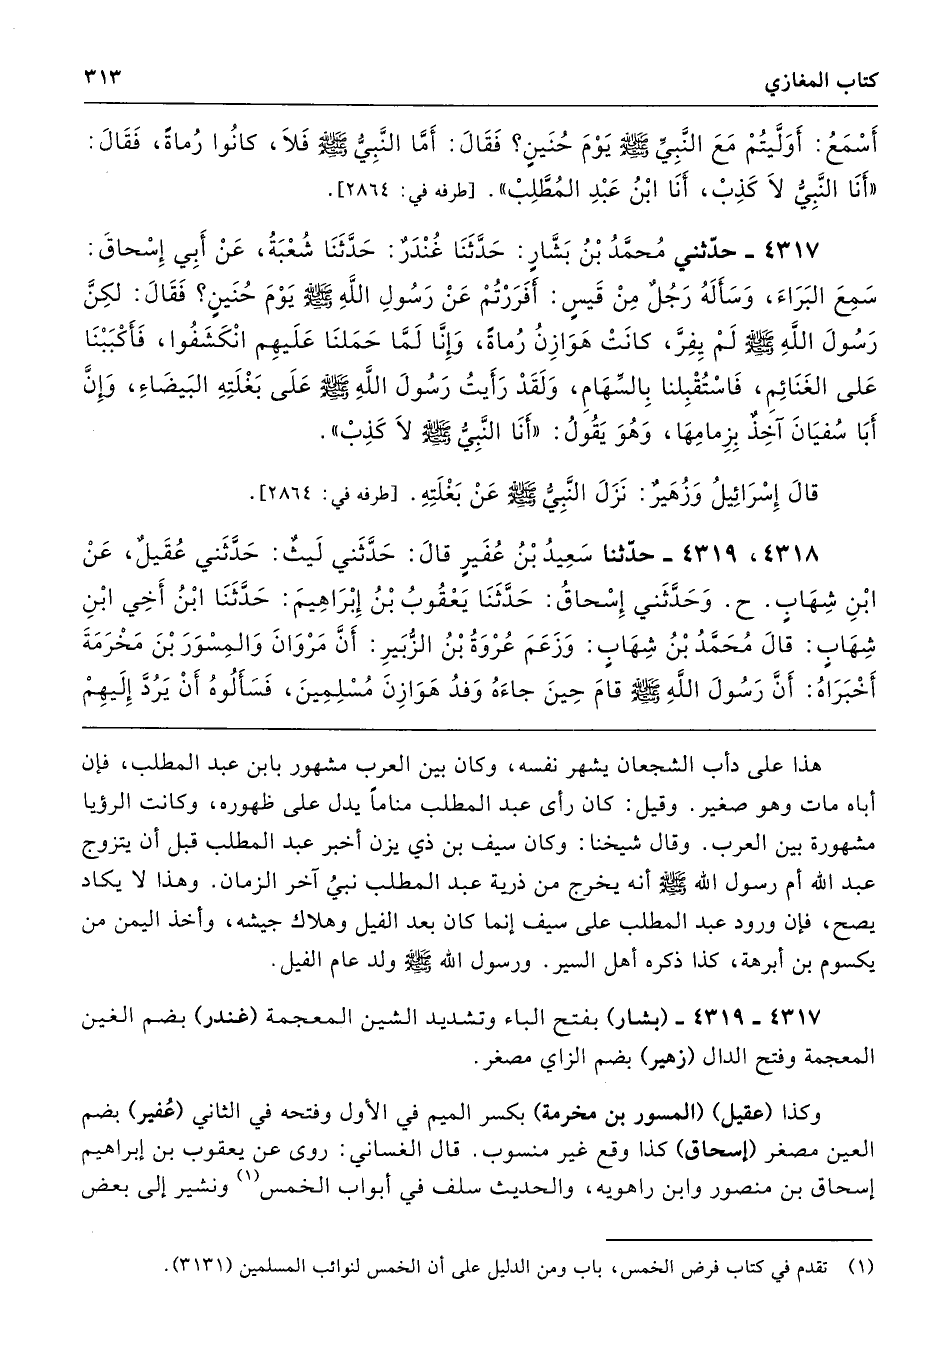 كتاب المغازي ٣١٣
أَسْمَعُ: أَوَلَّيتُمْ مَعَ النَّبِيِّ ﷺ يَوْمَ حُنَينٍ؟ فَقَالَ: أَمَّا النَّبِيُّ ﷺ فَلاَ، كانُوا رُماةً، فَقَالَ:
«أَنَا النَّبِيُّ لاَ كَذِبْ، أَنَا ابْنُ عَبْدِ المُطَّلِبْ». [طرفه في: ٢٨٦٤].
٤٣١٧ ـ حدّثني مُحمَّدُ بْنُ بَشَّارٍ: حَدَّثَنَا غُنْدَرٌ: حَدَّثَنَا شُعْبَةُ، عَنْ أَبِي إِسْحاقَ:
سَمِعَ البَرَاءَ، وَسَأَلَهُ رَجُلٌ مِنْ قَيسٍ: أَفَرَرْتُمْ عَنْ رَسُولِ اللَّهِ ﷺ يَوْمَ حُنَينٍ؟ فَقَالَ: لكِنَّ
رَسُولَ اللَّهِ ﷺ لَمْ يِفِرَّ، كانَتْ هَوَازِنُ رُماةً، وَإِنَّا لَمَّا حَمَلنَا عَلَيهِمِ انْكَشَفُوا، فَأَكْبَبْنَا
عَلى الغَنَائِمِ، فَاسْتُقْبِلنا بِالسِّهَامِ، وَلَقَدْ رَأَيتُ رَسُولَ اللَّهِ ﷺ عَلَى بَغْلَتِهِ البَيضَاءِ، وَإِنَّ
أَبَا سُفيَانَ آخِذٌ بِزِمامِهَا، وَهُوَ يَقُولُ: «أَنَا النَّبِيُّ ﷺ لاَ كَذِبْ».
قالَ إِسْرَائِيلُ وَزُهَيرٌ: نَزَلَ النَّبِيُّ ﷺ عَنْ بَغْلَتِهِ. [طرفه في: ٢٨٦٤].
٤٣١٨، ٤٣١٩ ـ حدّثنا سَعِيدُ بْنُ عُفَيرٍ قالَ: حَدَّثَني لَيثٌ: حَدَّثَني عُقَيلٌ، عَنْ
ابْنِ شِهَابٍ. ح. وَحَدَّثَنِي إِسْحاقُ: حَدَّثَنَا يَعْقُوبُ بْنُ إِبْرَاهِيمَ: حَدَّثَنَا ابْنُ أَخِي ابْنِ
شِهَابٍ: قالَ مُحَمَّدُ بْنُ شِهَابٍ: وَزَعَمَ عُرْوَةُ بْنُ الزُّبَيرِ: أَنَّ مَرْوَانَ وَالمِسْوَرَ بْنَ مَخْرَمَةَ
أَخْبَرَاهُ: أَنَّ رَسُولَ اللَّهِ ﷺ قامَ حِينَ جاءَهُ وَفدُ هَوَازِنَ مُسْلِمِينَ، فَسَأَلُوهُ أَنْ يَرُدَّ إِلَيهِمْ
هذا على دأب الشجعان يشهر نفسه، وكان بين العرب مشهور بابن عبد المطلب، فإن
أباه مات وهو صغير. وقيل: كان رأى عبد المطلب مناماً يدل على ظهوره، وكانت الرؤيا
مشهورة بين العرب. وقال شيخنا: وكان سيف بن ذي يزن أخبر عبد المطلب قبل أن يتزوج
عبد الله أم رسول الله ﷺ أنه يخرج من ذرية عبد المطلب نبيُ آخر الزمان. وهذا لا يكاد
يصح، فإن ورود عبد المطلب على سيف إنما كان بعد الفيل وهلاك جيشه، وأخذ اليمن من
يكسوم بن أبرهة، كذا ذكره أهل السير. ورسول الله ﷺ ولد عام الفيل.
٤٣١٧ ـ ٤٣١٩ ـ (بشار) بفتح الباء وتشديد الشين المعجمة (غندر) بضم الغين
المعجمة وفتح الدال (زهير) بضم الزاي مصغر.
وكذا (عقيل) (المسور بن مخرمة) بكسر الميم في الأول وفتحه في الثاني (عُفير) بضم
العين مصغر (إسحاق) كذا وقع غير منسوب. قال الغساني: روى عن يعقوب بن إبراهيم
إسحاق بن منصور وابن راهويه، والحديث سلف في أبواب الخمس(١) ونشير إلى بعض
(١) تقدم في كتاب فرض الخمس، باب ومن الدليل على أن الخمس لنوائب المسلمين (٣١٣١).